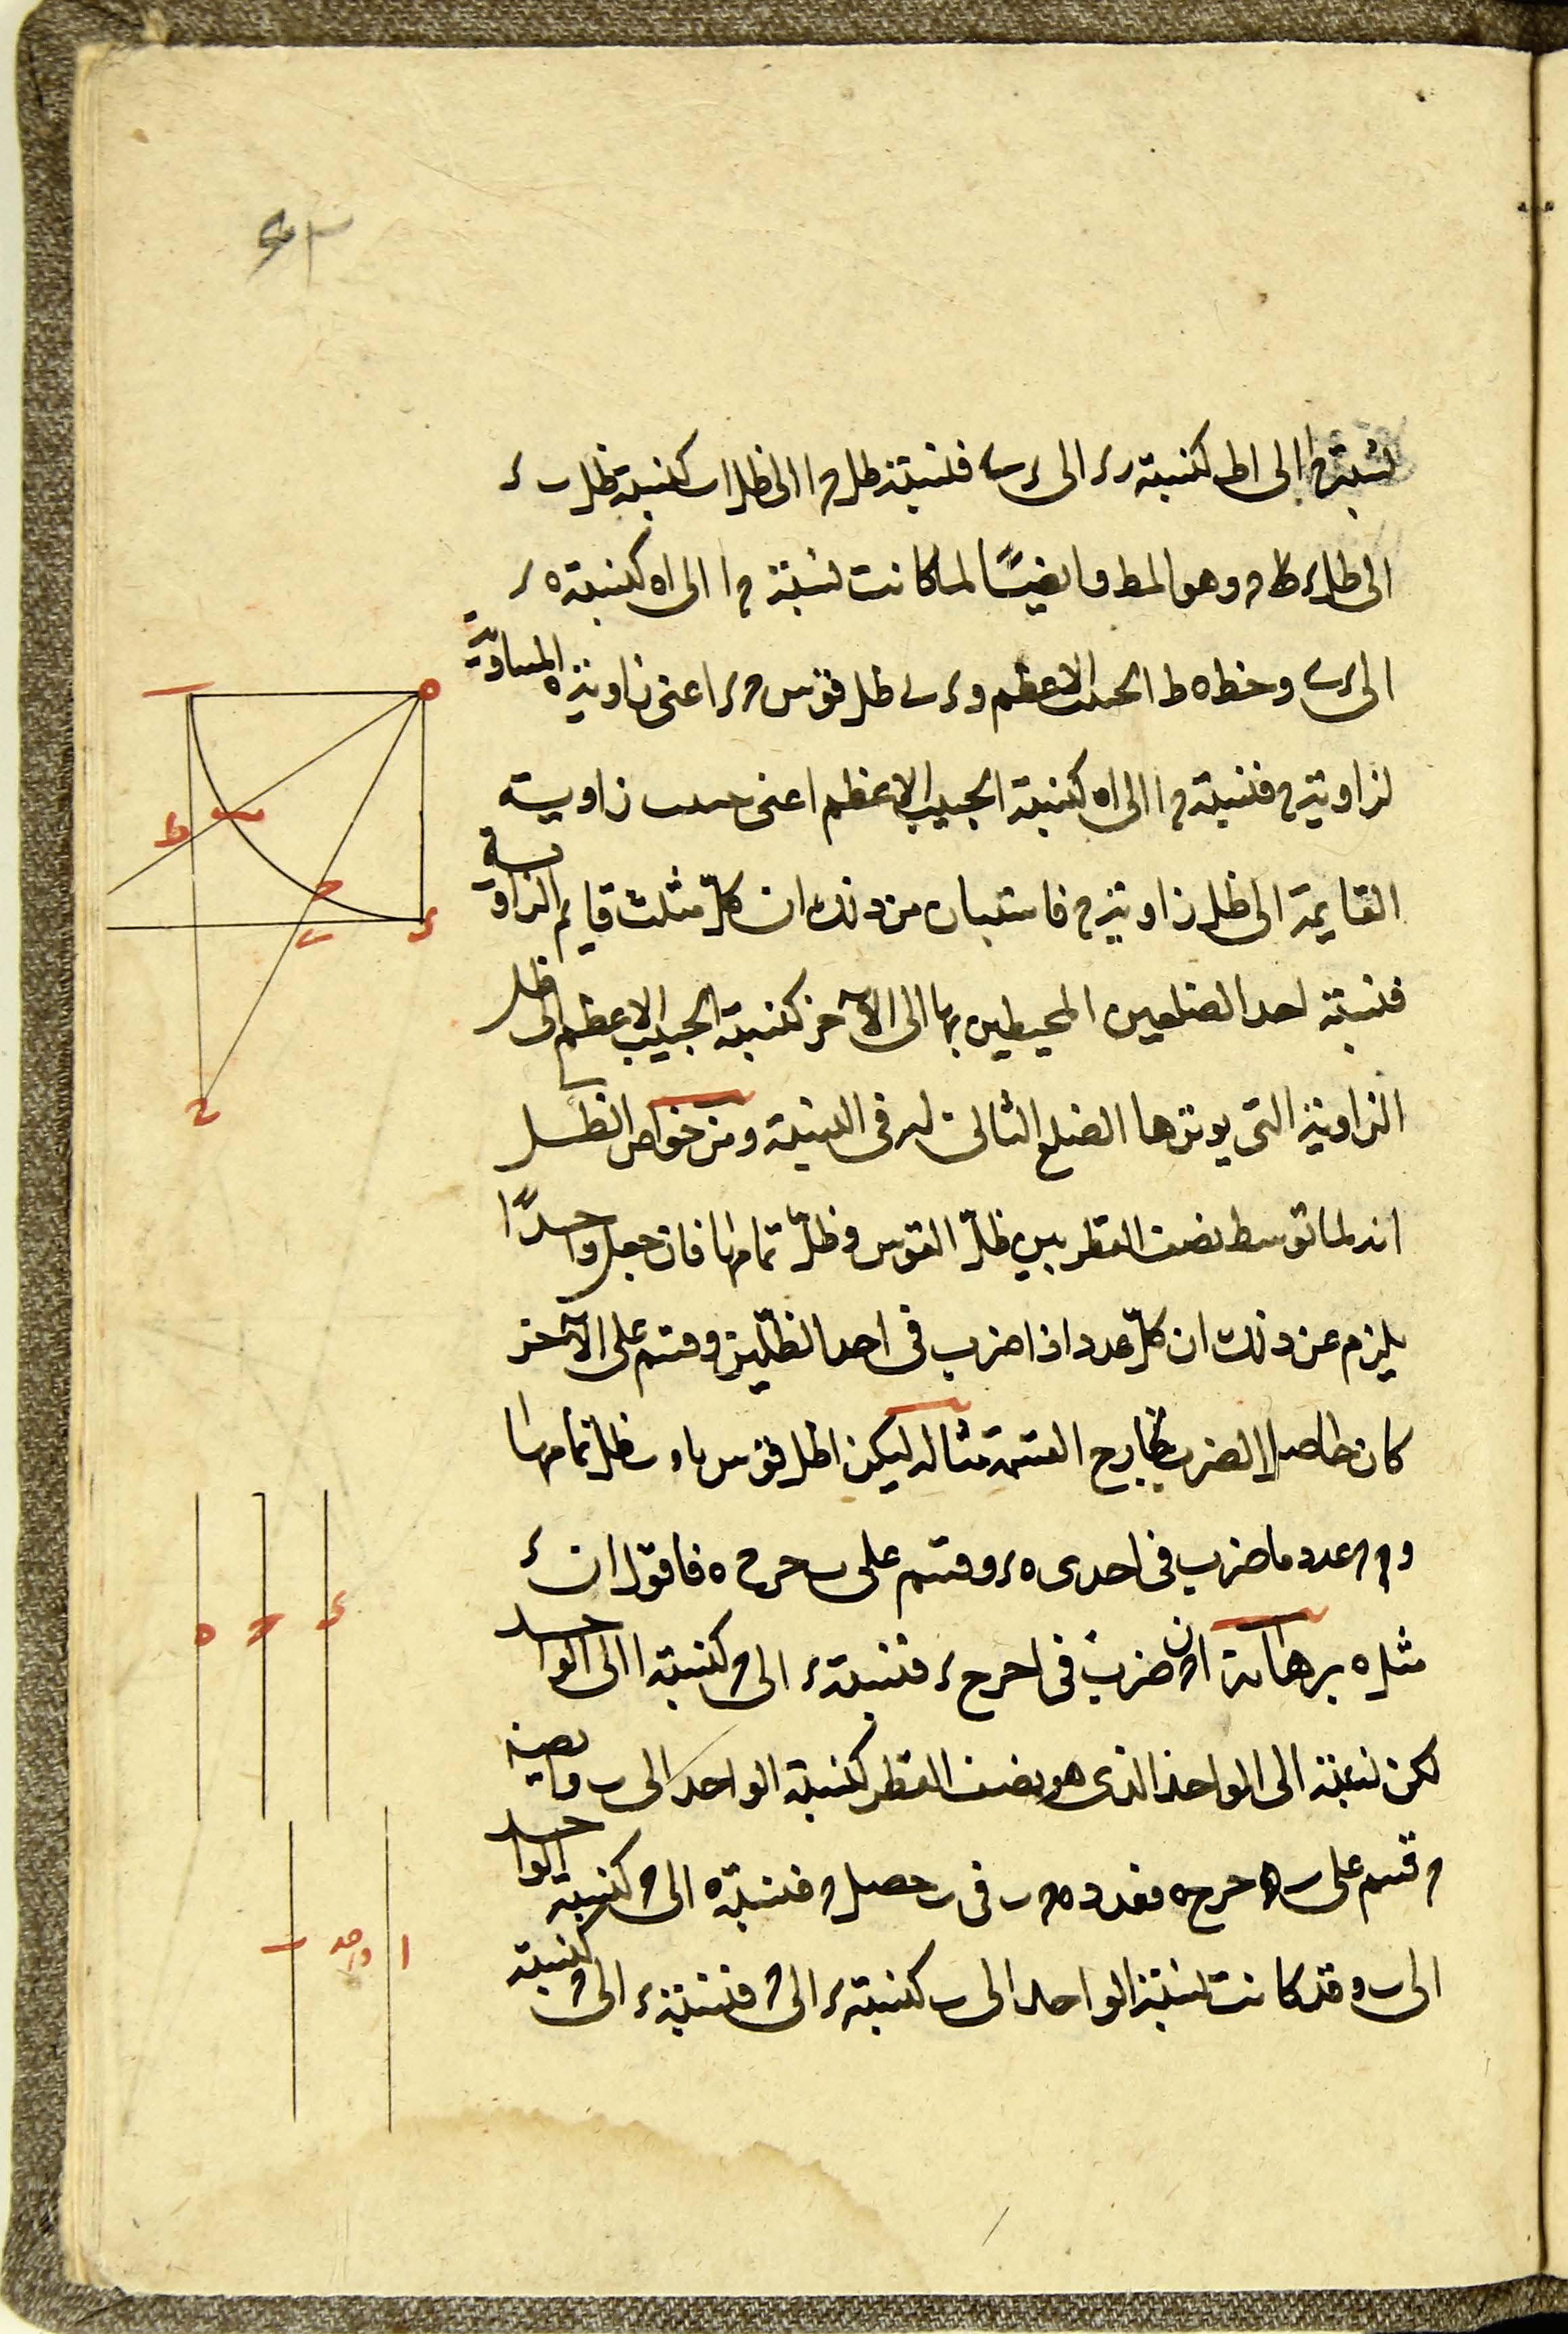 نسبة ح ا الى اط كنسبة د ى الى ى ب فنسبة ظل ح ا الى ظل اب كنسبة ظل ب ى
الى ظل ى ح وهو المط وايضًا لما كانت نسبة ح ا الى اه كنسبة ه ى
الى ى ب وخط ه ط الجيب الاعظم و ى ب ظل قوس ح ى اعنى زاوية ه المساوية
لزاوية ح فنسبة ح ا الى اه كنسبة الجيب الاعظم اعنى جيب زاوية
القايمة الى ظل زاوية ح فاستبان من ذلك ان كلّ مثلث قايم الزاوية
فنسبة احد الضلعين المحيطين بها الى الآخر كنسبة الجيب الاعظم الى ظل
الزاوية التى يوترها الضلع التالى له فى النسبة ومن خواص الظل
انه لما توسط نصف القطر بين ظلّ القوس وظلّ تمامها فان جعل واحدًا
يلزم عن ذلك ان كلّ عدد اذا ضرب فى احد الظلّين وقسم على الآخر
كان حاصل الضرب كخارج القسمة مثاله ليكن ا ظل قوس ما و ب ظل تمامها
و ح عدد ما ضرب فى ا حدى ه ى وقسم على ب خرج ه فاقول ان ى
مثل ه برهانه ان ح ضرب فى ا خرج ى فنسبة ى الى ح كنسبة ا الى الواحد
لكن نسبة ا الى الواحد الذى هو نصف القطر كنسبة الواحد الى ب وايضًا
ح قسم على ب خرج ه فعدد ه ضرب فى ب حصل ح فنسبة ه الى ح كنسبة الواحد
الى ب وقد كانت نسبة الواحد الى ب كنسبة ى الى ح فنسبة ى الى ح كنسبة
ه
ا
ط
ب
ح
ى
ى
ح
ه
ا
واحد
ب